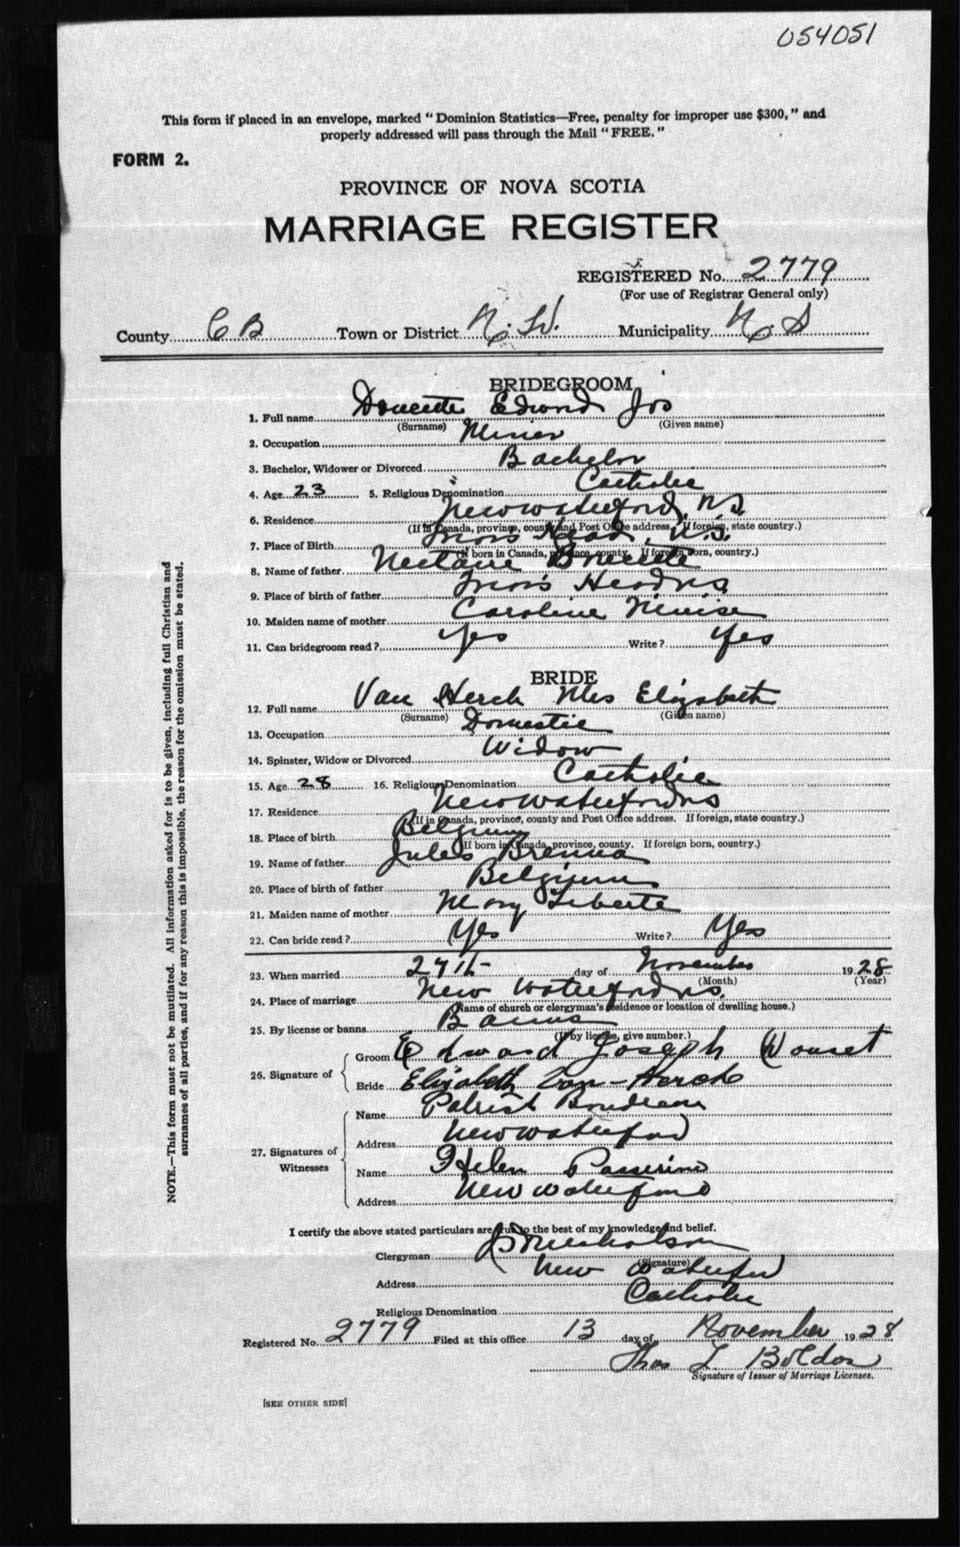 054051
This form if placed in an envelope, marked "Dominion Statistics—Free, penalty for improper use $300," and
properly addressed will pass through the Mail "FREE."
FORM 2.
PROVINCE OF NOVA SCOTIA
MARRIAGE REGISTER
REGISTERED No. 2779
(For use of Registrar General only)
County C B Town or District N. W. Municipality N. S
BRIDEGROOM
1. Full name Doucette Edward Jos
(Surname) (Given name)
2. Occupation Miner
3. Bachelor, Widower or Divorced Bachelor
4. Age 23 5. Religious Denomination Catholic
6. Residence New Waterford, N.S
(If in Canada, province, county and Post Office address. If foreign, state country.)
7. Place of Birth Friars Head, N.S.
(If born in Canada, province, county. If foreign born, country.)
8. Name of father Nectaire Doucette
9. Place of birth of father Friars Head NS
10. Maiden name of mother Caroline
11. Can bridegroom read? Yes Write? Yes
BRIDE
12. Full name Van Herck Mrs Elizabeth
(Surname) (Given name)
13. Occupation Domestic
14. Spinster, Widow or Divorced Widow
15. Age 28 16. Religious Denomination Catholic
17. Residence New Waterford NS
(If in Canada, province, county and Post Office address. If foreign, state country.)
18. Place of birth Belgium
(If born in Canada, province, county. If foreign born, country.)
19. Name of father Jules
20. Place of birth of father Belgium
21. Maiden name of mother Mary Liberte
22. Can bride read? Yes Write? Yes
23. When married 27th day of November 1928
(Month) (Year)
24. Place of marriage New Waterford NS
(Name of church or clergyman's residence or location of dwelling house.)
25. By license or banns Banns
(If by license, give number.)
26. Signature of
Groom Edward Joseph
Bride Elizabeth Van-Herck
27. Signatures of Witnesses
Name Patrick Boudreau
Address New Waterford
Name Helen
Address New Waterford
I certify the above stated particulars are true to the best of my knowledge and belief.
Clergyman
(Signature)
Address New Waterford
Religious Denomination Catholic
Registered No. 2779 Filed at this office 13 day of November 1928
Thos L
Signature of Issuer of Marriage Licenses.
[SEE OTHER SIDE]
NOTE.—This form must not be mutilated. All information asked for is to be given, including full Christian and
surnames of all parties, and if for any reason this is impossible, the reason for the omission must be stated.